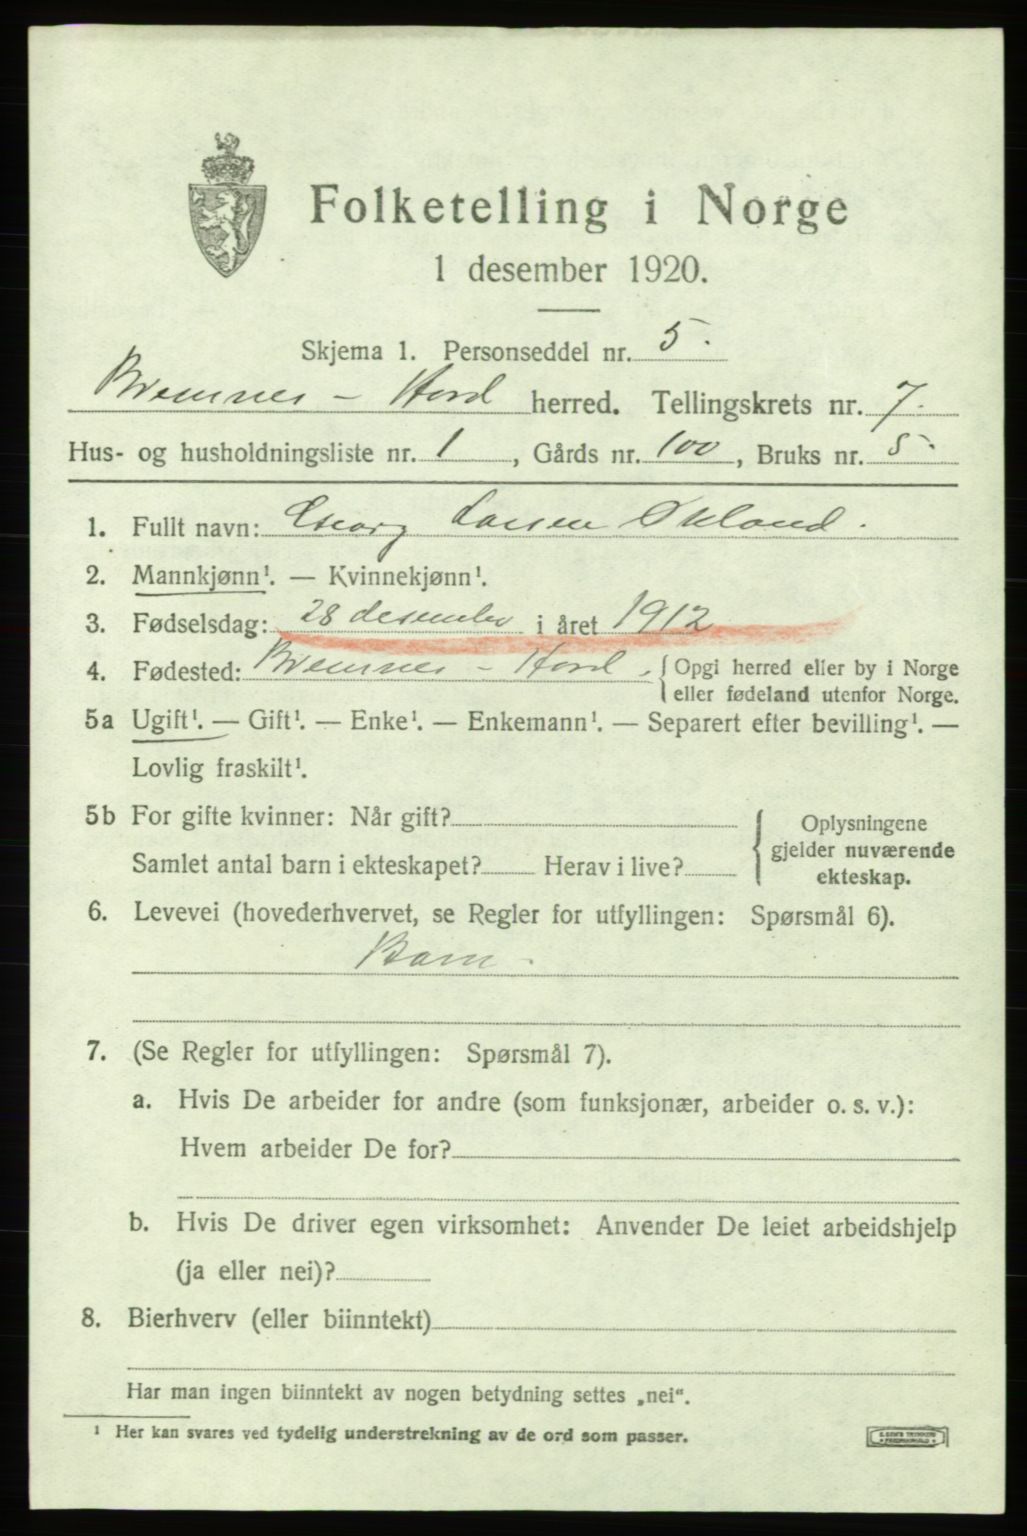 Folketelling i Norge
1 desember 1920.
Skjema 1. Personseddel nr. 5.
Bremnes - Hord herred. Tellingskrets nr. 7.
Hus- og husholdningsliste nr. 1, Gårds nr. 100, Bruks nr. 5.
1. Fullt navn: Georg Larsen Økland.
2. Mannkjønn¹. — Kvinnekjønn¹.
3. Fødselsdag: 28 desember i året 1912
4. Fødested: Bremnes - Hord. { Opgi herred eller by i Norge
eller fødeland utenfor Norge.
5a Ugift¹. — Gift¹. — Enke¹. — Enkemann¹. — Separert efter bevilling¹. —
Lovlig fraskilt¹.
5b For gifte kvinner: Når gift?
Samlet antal barn i ekteskapet? Herav i live?
Oplysningene
gjelder nuværende
ekteskap.
6. Levevei (hovederhvervet, se Regler for utfyllingen: Spørsmål 6).
Barn -
7. (Se Regler for utfyllingen: Spørsmål 7).
a. Hvis De arbeider for andre (som funksjonær, arbeider o. s. v.):
Hvem arbeider De for?
b. Hvis De driver egen virksomhet: Anvender De leiet arbeidshjelp
(ja eller nei)?
8. Bierhverv (eller biinntekt)
Har man ingen biinntekt av nogen betydning settes „nei“.
¹ Her kan svares ved tydelig understrekning av de ord som passer.